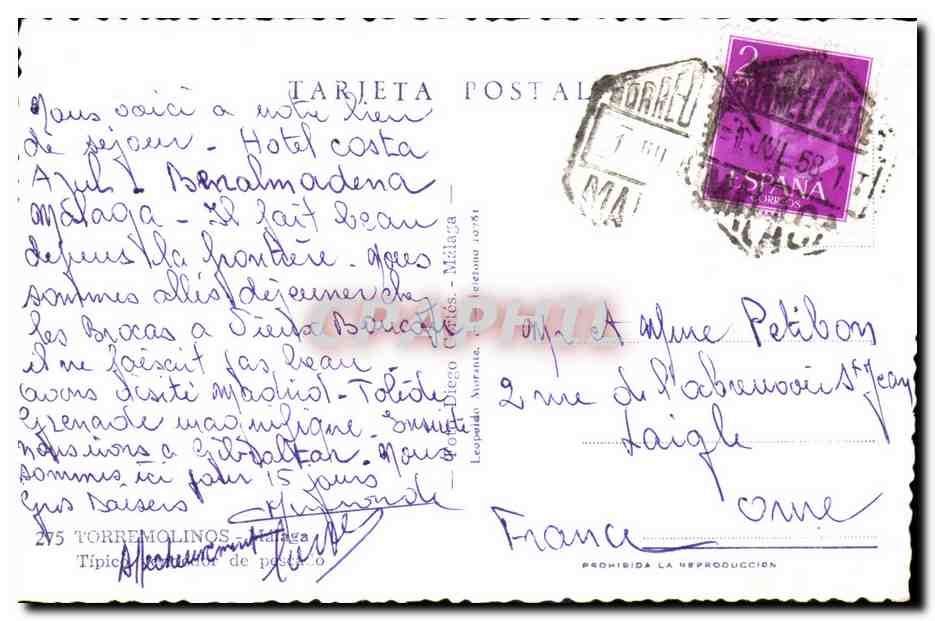 TARJETA POSTAL
Nous voici a notre lieu
de séjour - Hotel costa
Azul - Benalmadena
Málaga - Il fait beau
depuis la frontière - Nous
sommes allés déjeuner chez
les Brocas a Vieux Boucau
il ne faisait pas beau
avons visité Madrid - Tolède
Grenade magnifique. Ensuite
nous irons a Gibraltar - Nous
sommes ici pour 15 jours
Gros Baisers
Affectueusement
275 TORREMOLINOS - Málaga
Típico de pescado
Foto: Diego Cortés. - Málaga
Leopoldo Telefono 10781
CPAPHIL
2
CORREO
JUL 58
ESPAÑA
CORREOS
Mr et Mme Petibon
2 rue de l'abreuvoir St Jean
Laigle
Orne
France
PROHIBIDA LA REPRODUCCION